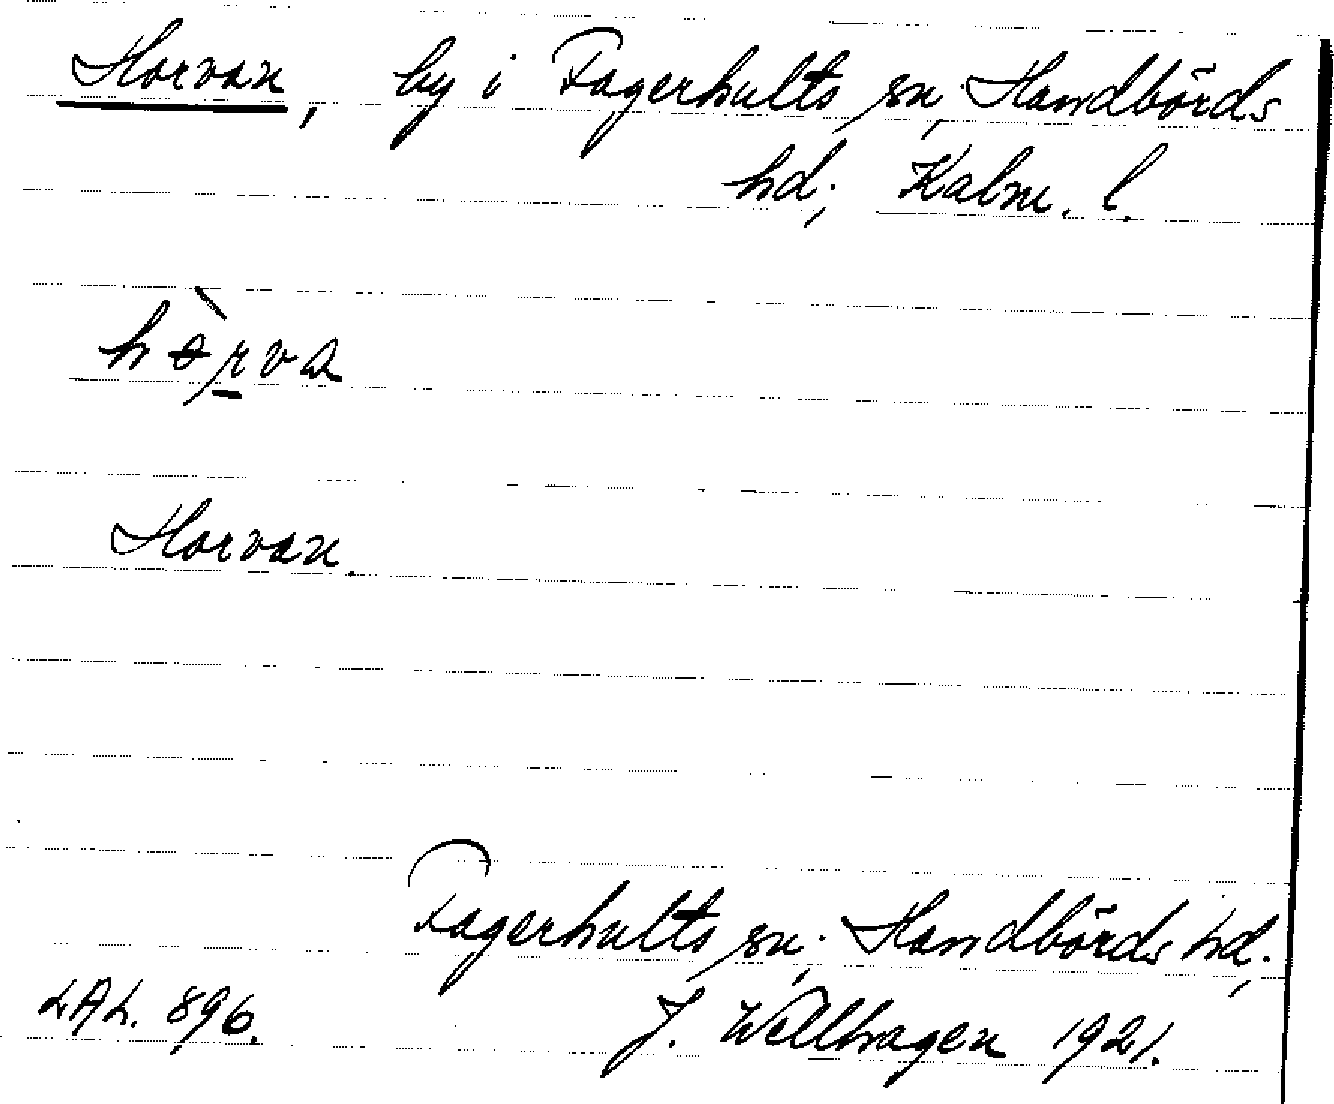 Horvan, by i Fagerhults sn, Handbörds
hd, Kalm. l.
hɵ̀rva
Horvan.
Fagerhults sn, Handbörds hd.
LAL. 896. J. Wellhagen 1921.